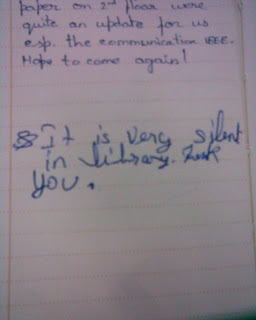 paper on 2nd floor were
quite an update for us
esp. the communication IEEE.
Hope to come again!
It is very silent
in library.
you.